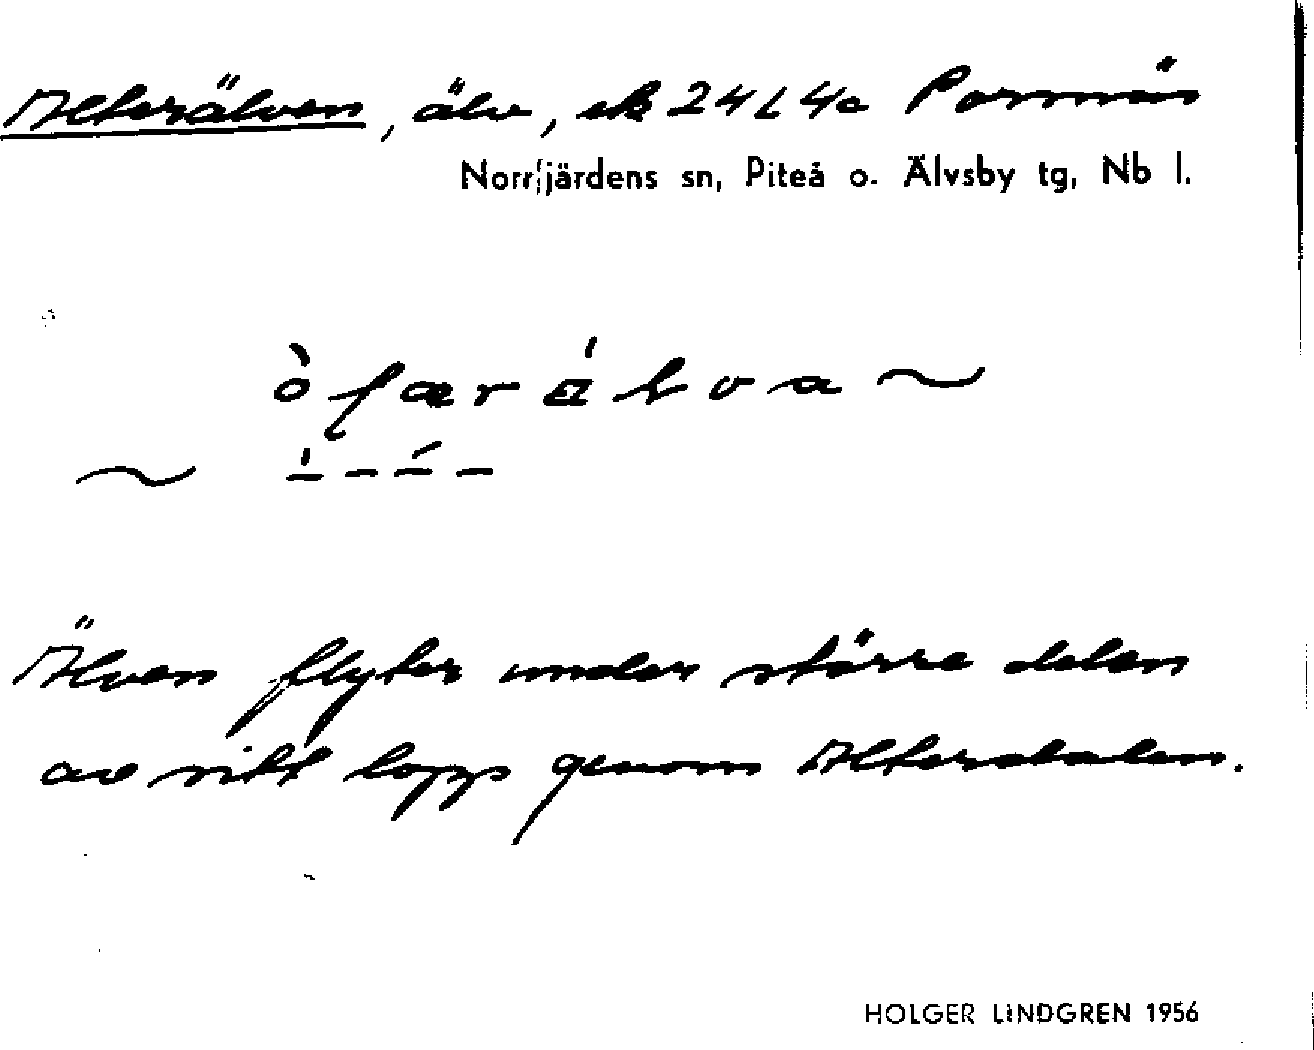 Alterälven, älv, ek 24 L 4c Porsnäs
Norrfjärdens sn, Piteå o. Älvsby tg, Nb l.
Älven flyter under större delen
av sitt lopp genom Alterdalen.
HOLGER LINDGREN 1956